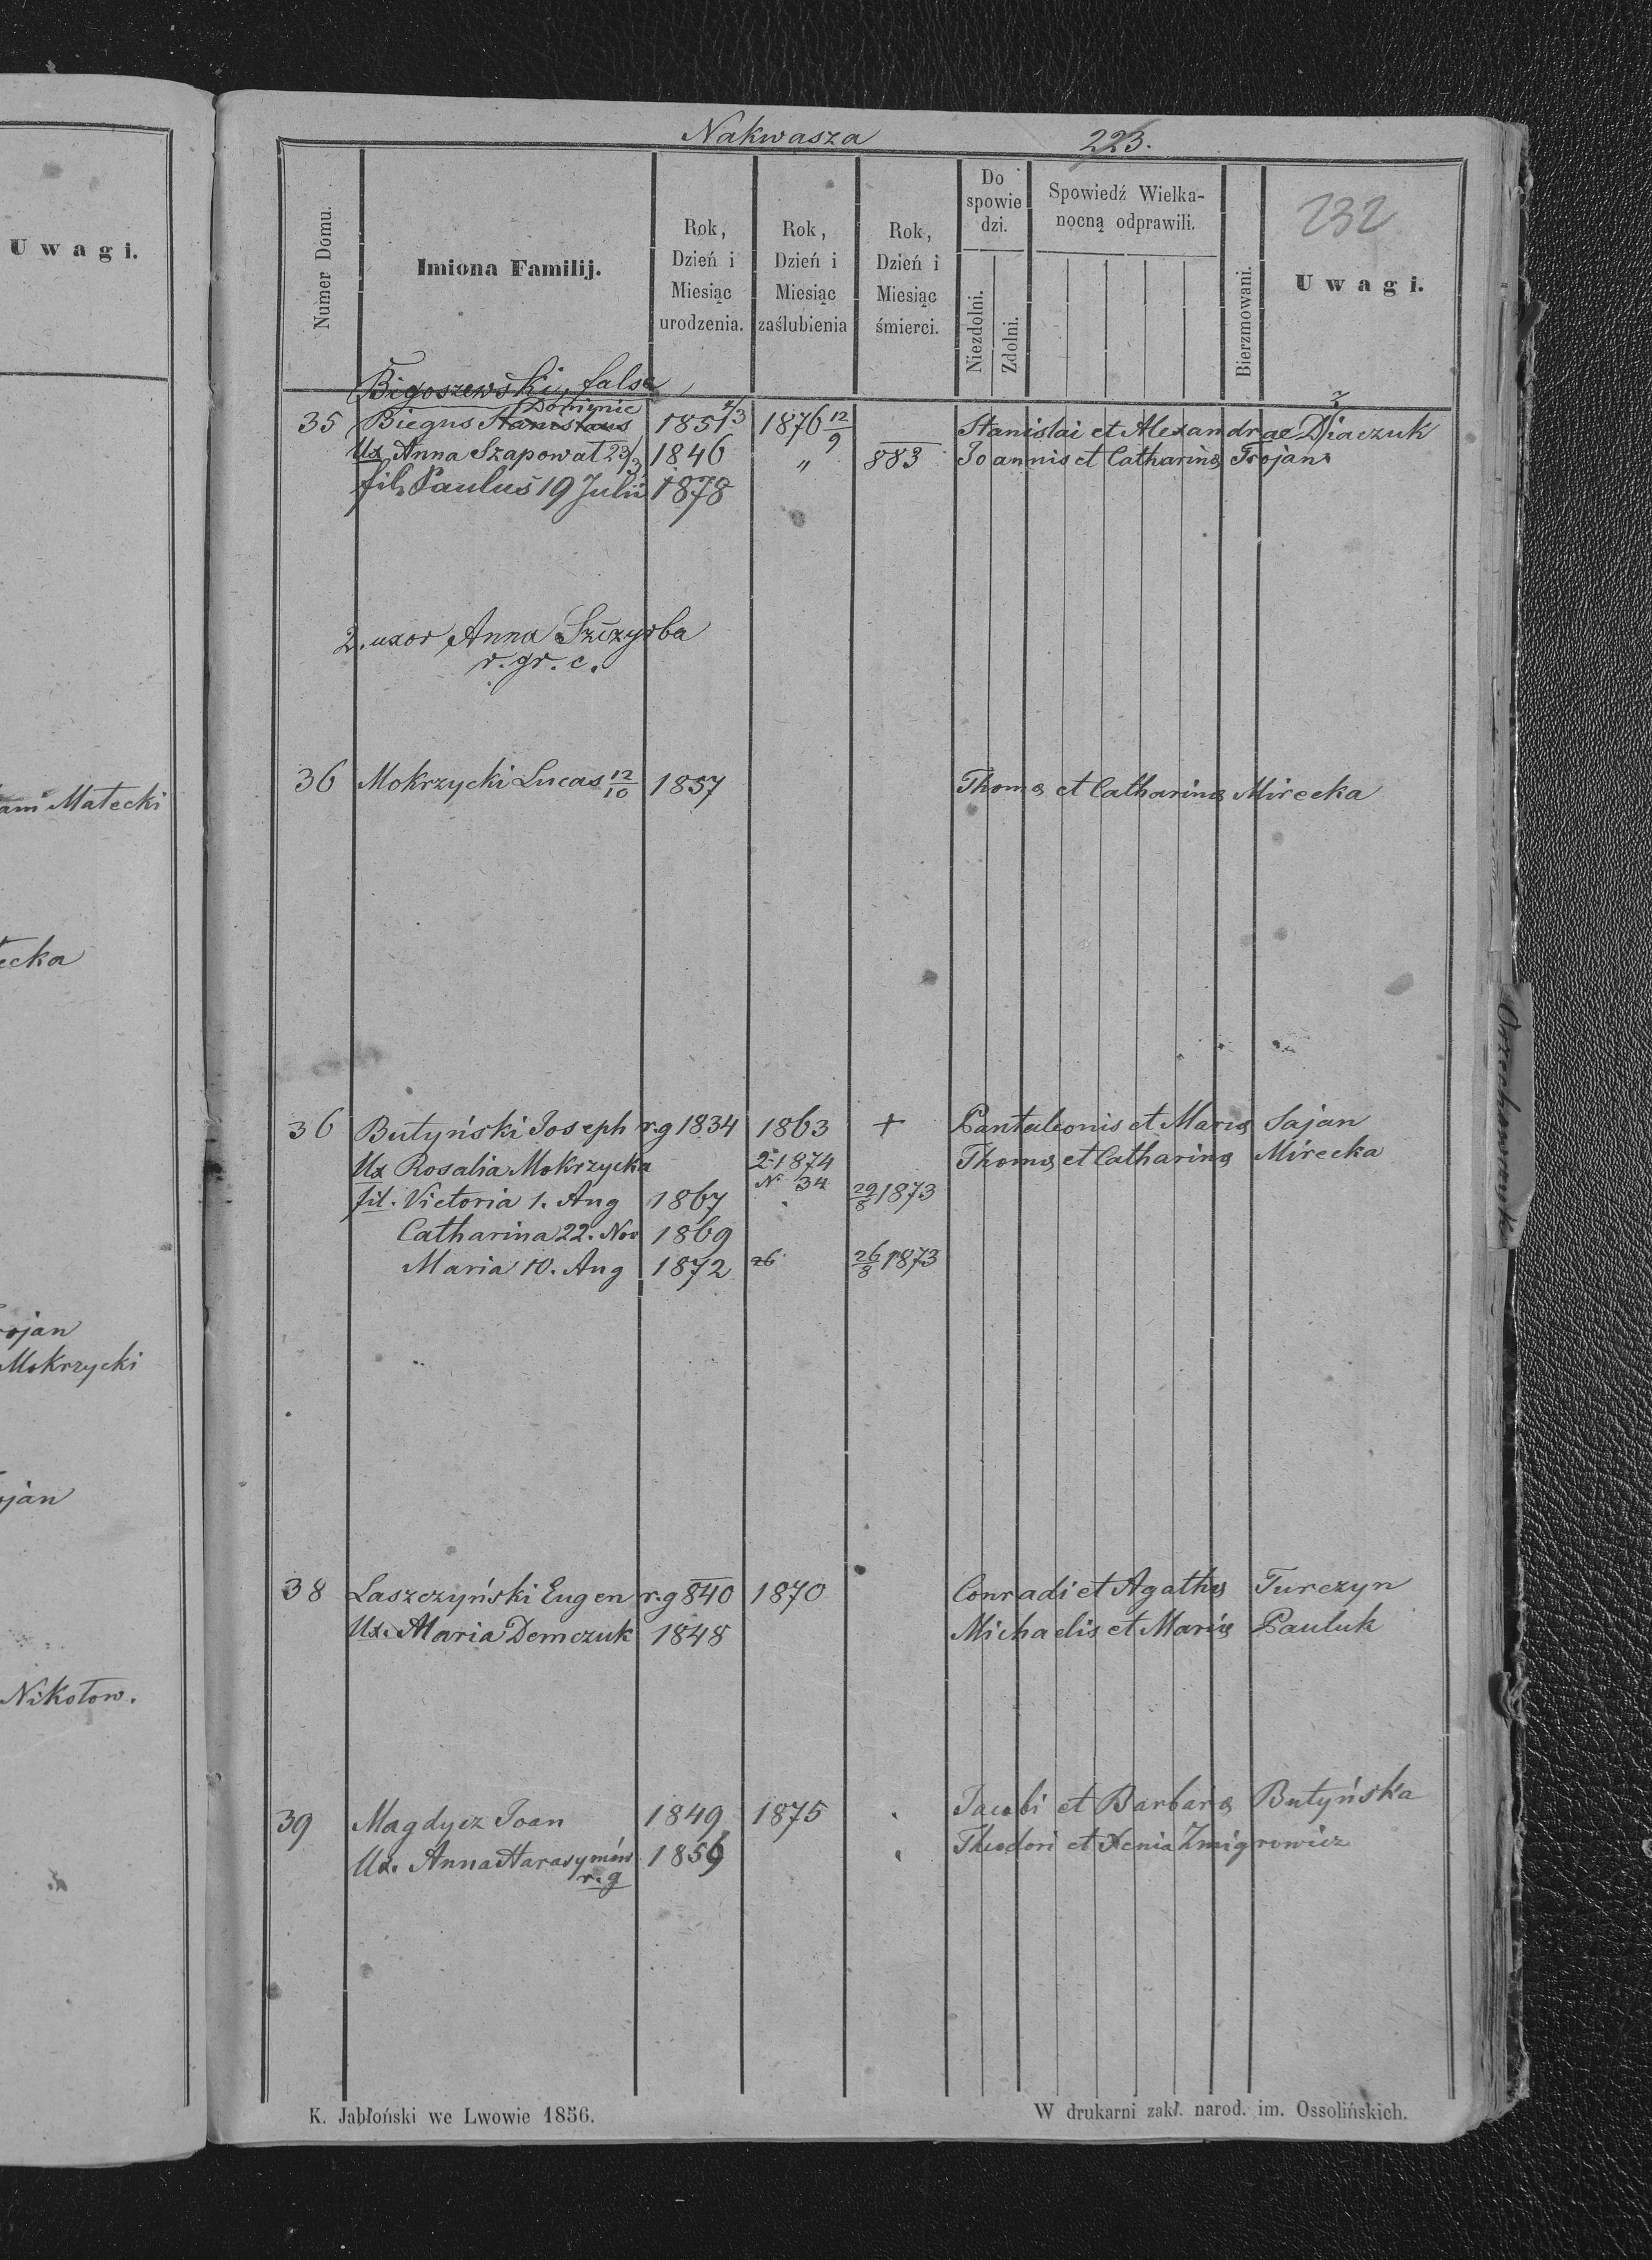 Uwagi.
ami Małecki
ecka
rojan
Mokrzycki
ojan
Nikołow.
Nakwasza 223.
232
Numer Domu.
Imiona Familij.
Rok, Dzień i Miesiąc urodzenia.
Rok, Dzień i Miesiąc zaślubienia
Rok, Dzień i Miesiąc śmierci.
Do spowiedzi.
Niezdolni.
Zdolni.
Spowiedź Wielkanocną odprawili.
Bierzmowani.
Uwagi.
Bigoszewski, false
Dominic
35 Biegus Stanislaus 1851 4/3 1876 12/9 Stanislai et Alexandrae Diaczuk
Ux Anna Szapowat 23/3 1846 " 883 Joannis et Catharinæ Trojan
fil. Paulus 19 Julii 1878
2. uxor Anna Szczyrba
r. gr. c.
36 Mokrzycki Lucas 12/10 1857 Thomæ et Catharinæ Mirecka
36 Butyński Joseph r.g 1834 1863 + Pantaleonis et Mariæ Sajan
Ux Rosalia Mokrzycka 2-1874 Thomæ et Catharinæ Mirecka
N 34
fil. Victoria 1. Aug 1867 29/8 1873
Catharina 22. Nov 1869
Maria 10. Aug 1872 26 26/8 1873
38 Laszczyński Eugen r.g 840 1870 Conradi et Agathæ Turczyn
Ux. Maria Demczuk 1848 Michaelis et Mariæ Pauluk
39 Magdycz Joan 1849 1875 Jacobi et Barbaræ Butyńska
Ux. Anna Harasymów 1856 Theodori et Xenia Żmigrowicz
r. g
K. Jabłoński we Lwowie 1856.
W drukarni zakł. narod. im. Ossolińskich.